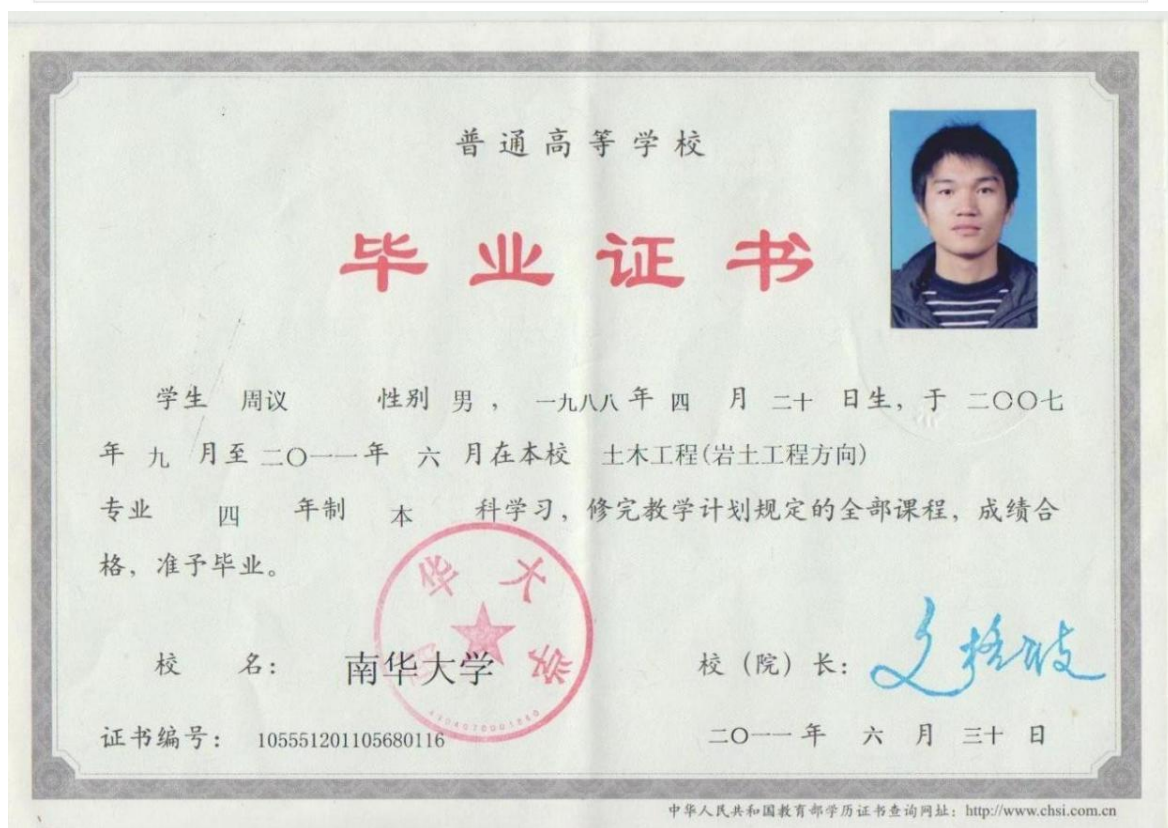 普通高等学校
毕业证书
学生 周议 性别 男 ， 一九八八 年 四 月 二十 日生，于 二〇〇七
年 九 月至 二〇一一 年 六 月在本校 土木工程(岩土工程方向)
专业 四 年制 本 科学习，修完教学计划规定的全部课程，成绩合
格，准予毕业。
南华大学
校 名： 南华大学 校（院）长：
证书编号： 105551201105680116 二〇一一 年 六 月 三十 日
中华人民共和国教育部学历证书查询网址：http://www.chsi.com.cn